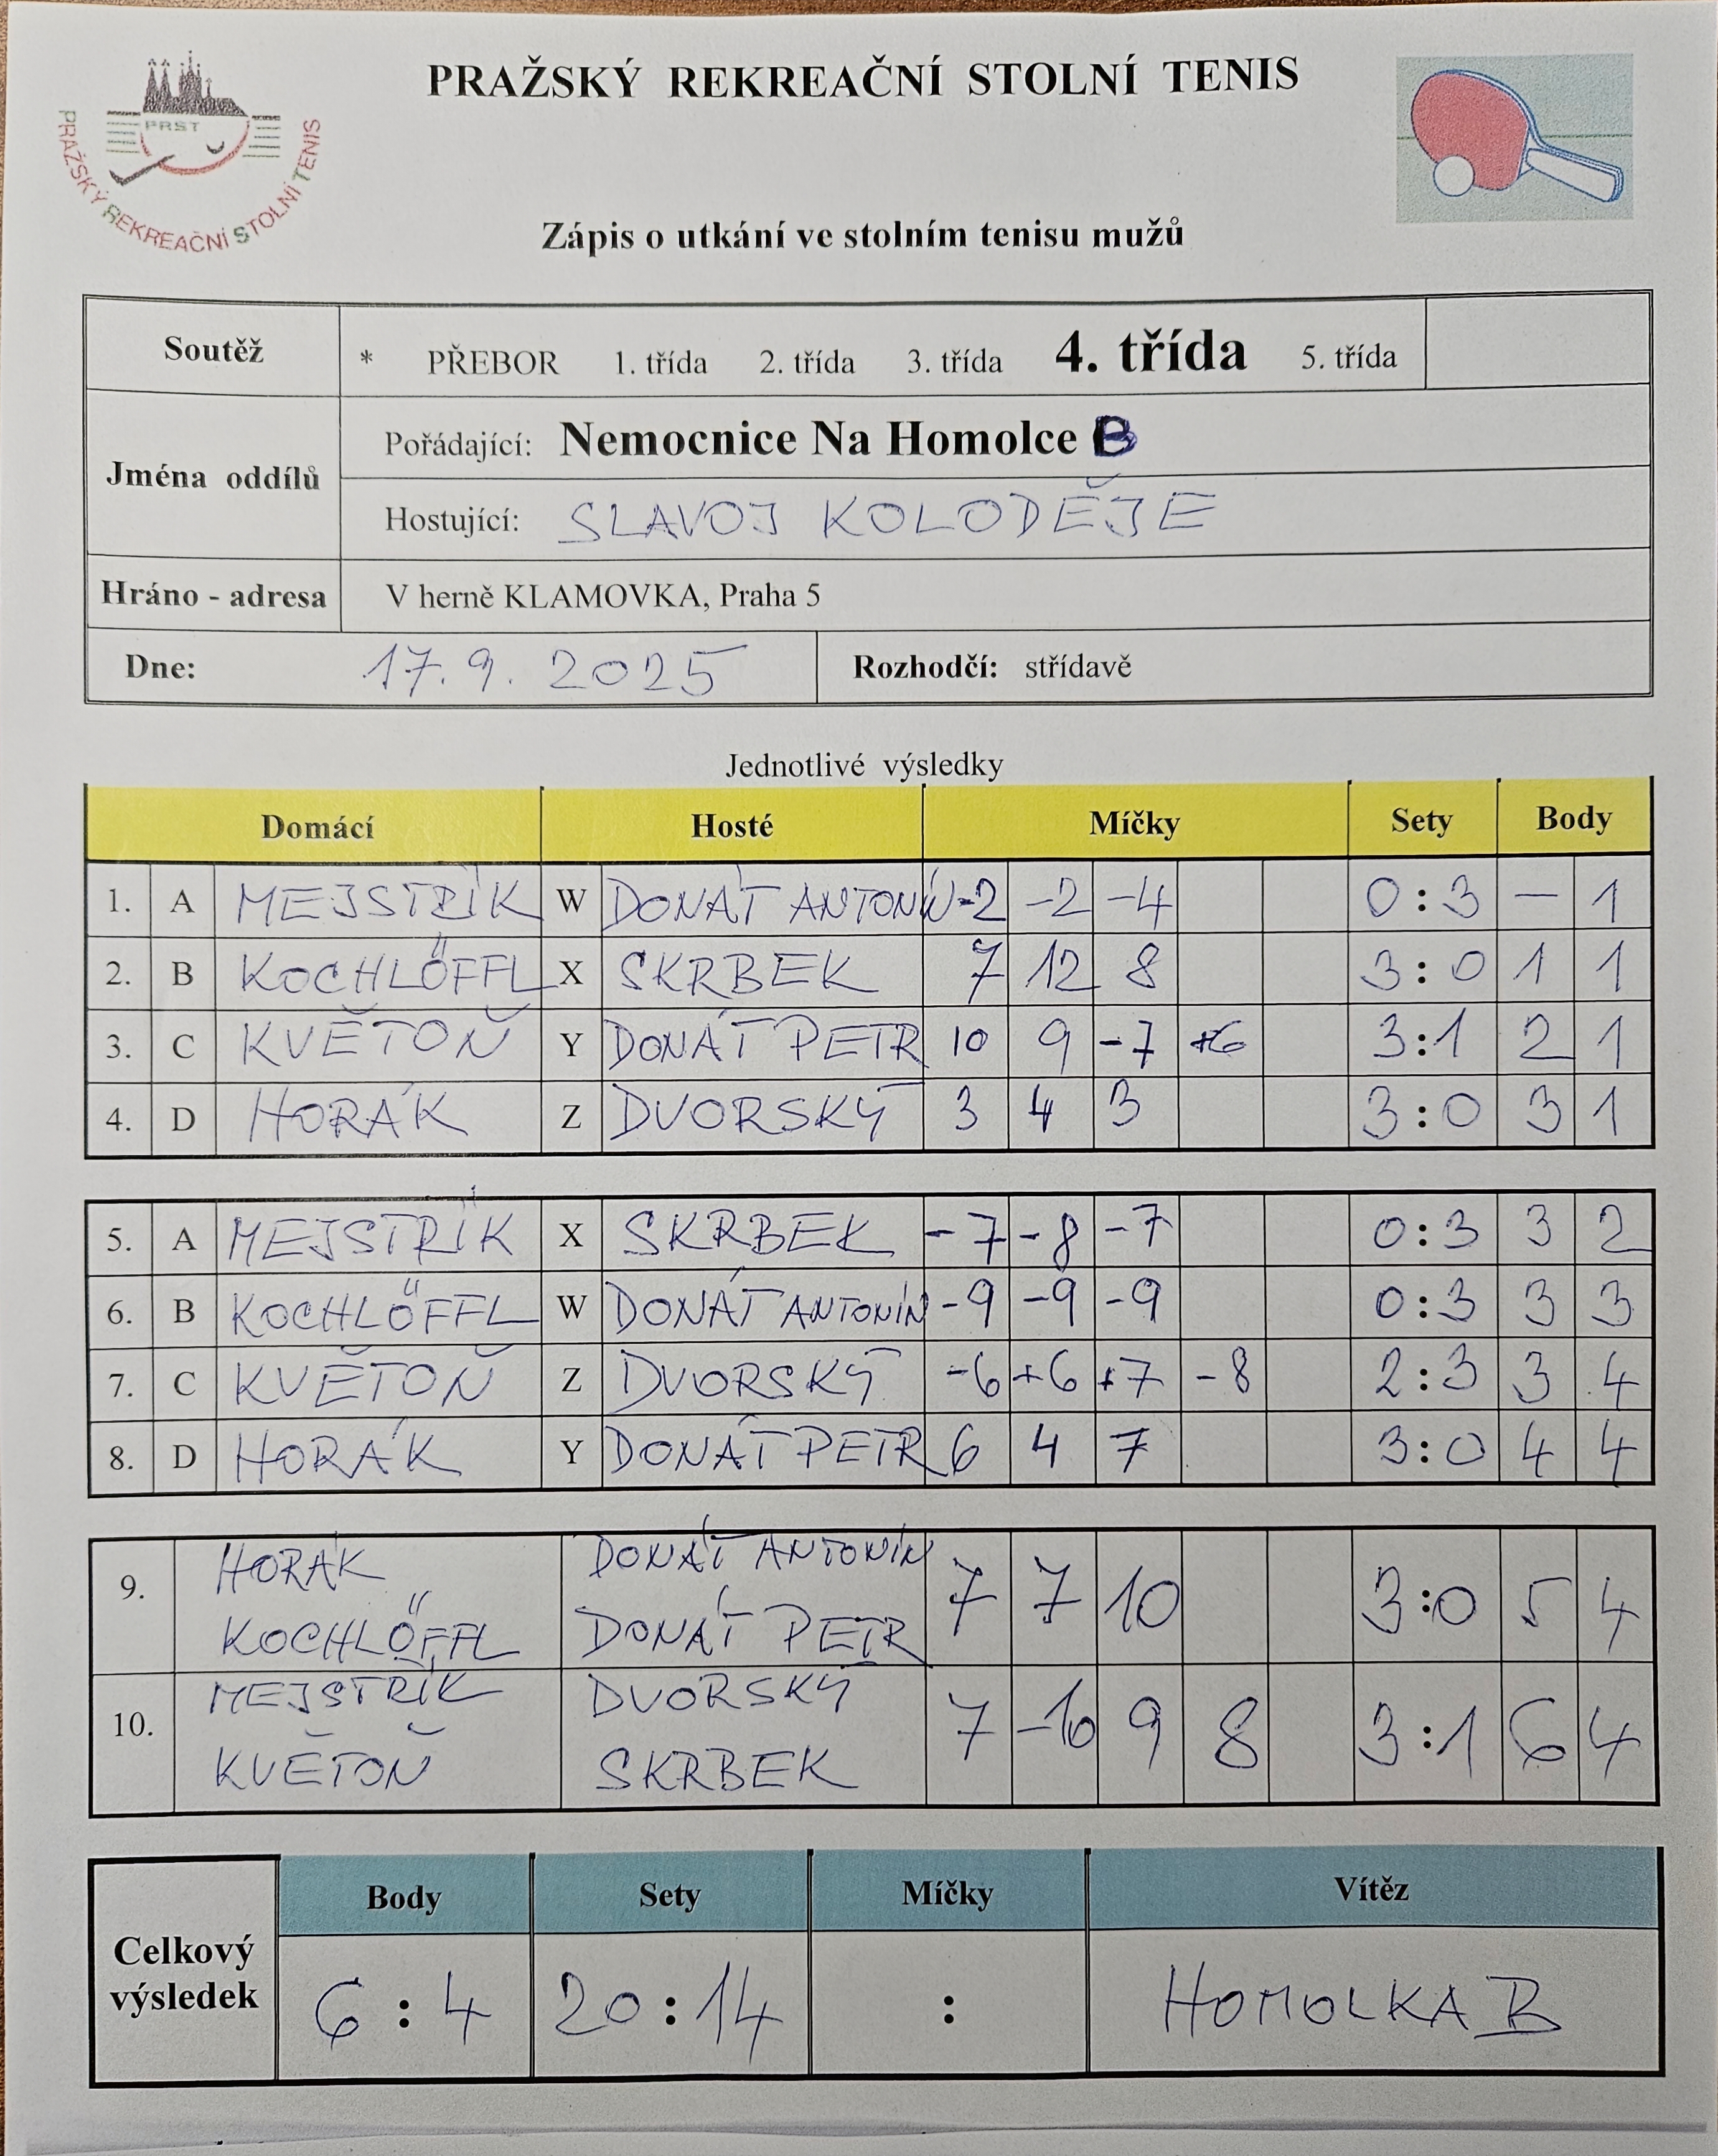 PRAŽSKÝ REKREAČNÍ STOLNÍ TENIS
PRST
PRAŽSKÝ REKREAČNÍ STOLNÍ TENIS
Zápis o utkání ve stolním tenisu mužů
Soutěž * PŘEBOR 1. třída 2. třída 3. třída 4. třída 5. třída
Jména oddílů
Pořádající: Nemocnice Na Homolce B
Hostující: SLAVOJ KOLODĚJE
Hráno - adresa V herně KLAMOVKA, Praha 5
Dne: 17. 9. 2025 Rozhodčí: střídavě
Jednotlivé výsledky
Domácí Hosté Míčky Sety Body
1. A MEJSTŘÍK W DONÁT ANTONÍN -2 -2 -4 0:3 — 1
2. B KOCHLÖFFL X SKRBEK 7 12 8 3:0 1 1
3. C KVĚTOŇ Y DONÁT PETR 10 9 -7 +6 3:1 2 1
4. D HORÁK Z DVORSKÝ 3 4 3 3:0 3 1
5. A MEJSTŘÍK X SKRBEK -7 -8 -7 0:3 3 2
6. B KOCHLÖFFL W DONÁT ANTONÍN -9 -9 -9 0:3 3 3
7. C KVĚTOŇ Z DVORSKÝ -6 +6 +7 -8 2:3 3 4
8. D HORÁK Y DONÁT PETR 6 4 7 3:0 4 4
9. HORÁK DONÁT ANTONÍN 7 7 10 3:0 5 4
KOCHLÖFFL DONÁT PETR
10. MEJSTŘÍK DVORSKÝ 7 -10 9 8 3:1 6 4
KVĚTOŇ SKRBEK
Body Sety Míčky Vítěz
Celkový výsledek 6:4 20:14 : HOMOLKA B